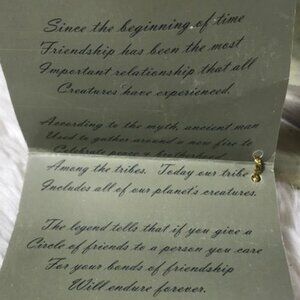 Since the beginning of time
Friendship has been the most
Important relationship that all
Creatures have experienced.
According to the myth, ancient man
Used to gather around a new fire to
Celebrate peace & brotherhood
Among the tribes. Today our tribe
Includes all of our planet's creatures.
The legend tells that if you give a
Circle of friends to a person you care
For your bonds of friendship
Will endure forever.